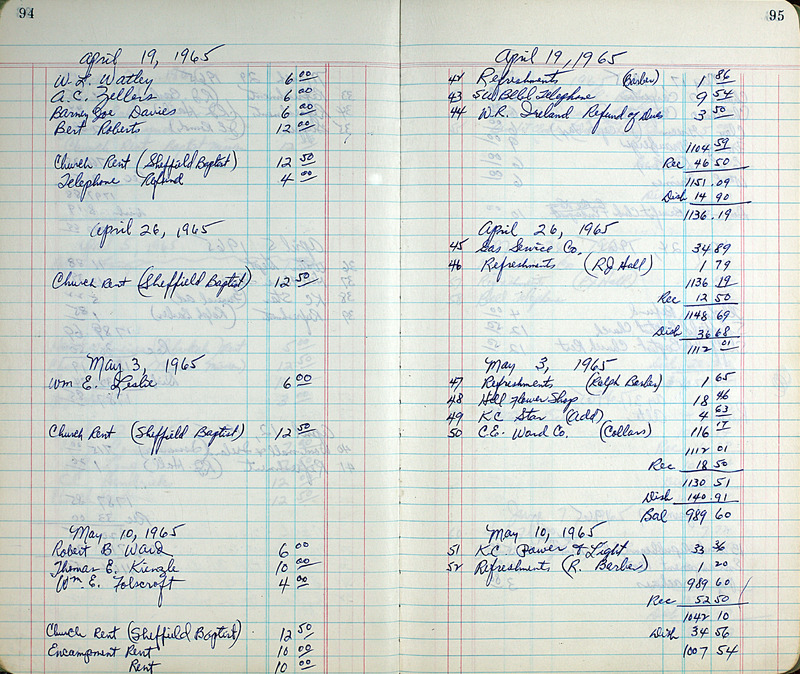 94
April 19, 1965
W. L. Watley 6 00
A.C. Zellers 6 00
Barney Joe Davies 6 00
Bert Roberts 12 00
Church Rent (Sheffield Baptist) 12 50
Telephone Refund 4 00
April 26, 1965
Church Rent (Sheffield Baptist) 12 50
May 3, 1965
Wm E. Leslie 6 00
Church Rent (Sheffield Baptist) 12 50
May 10, 1965
Robert B Ward 6 00
Thomas E. Kienzle 10 00
Wm. E. Folscroft 4 00
Church Rent (Sheffield Baptist) 12 50
Encampment Rent 10 00
Rent 10 00
95
April 19, 1965
42 Refreshments (Barber) 1 86
43 SW Bell Telephone 9 54
44 W.R. Ireland Refund of Dues 3 50
1104 59
Rec 46 50
1151.09
Disb 14 90
1136.19
April 26, 1965
45 Gas Service Co. 34 89
46 Refreshments (RJ Hall) 1 79
1136 19
Rec 12 50
1148 69
Disb 36 68
1112 01
May 3, 1965
47 Refreshments (Ralph Barber) 1 65
48 Hall Flower Shop 18 46
49 K.C. Star (Add) 4 63
50 C.E. Ward Co. (Collars) 116 17
1112 01
Rec 18 50
1130 51
Disb 140.91
Bal 989 60
May 10, 1965
51 K.C. Power & Light 33 36
52 Refreshments (R. Barber) 1 20
989 60
Rec 52 50
1042 10
Disb 34 56
1007 54